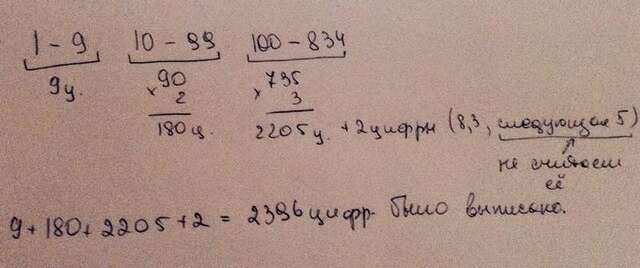 1 - 9 10 - 99 100 - 834
9ц. × 90 × 735
2 3
180ц. 2205ц. +2цифры (8,3, следующая 5)
не считаем
её
9+180+2205+2 = 2396цифр было выписано.